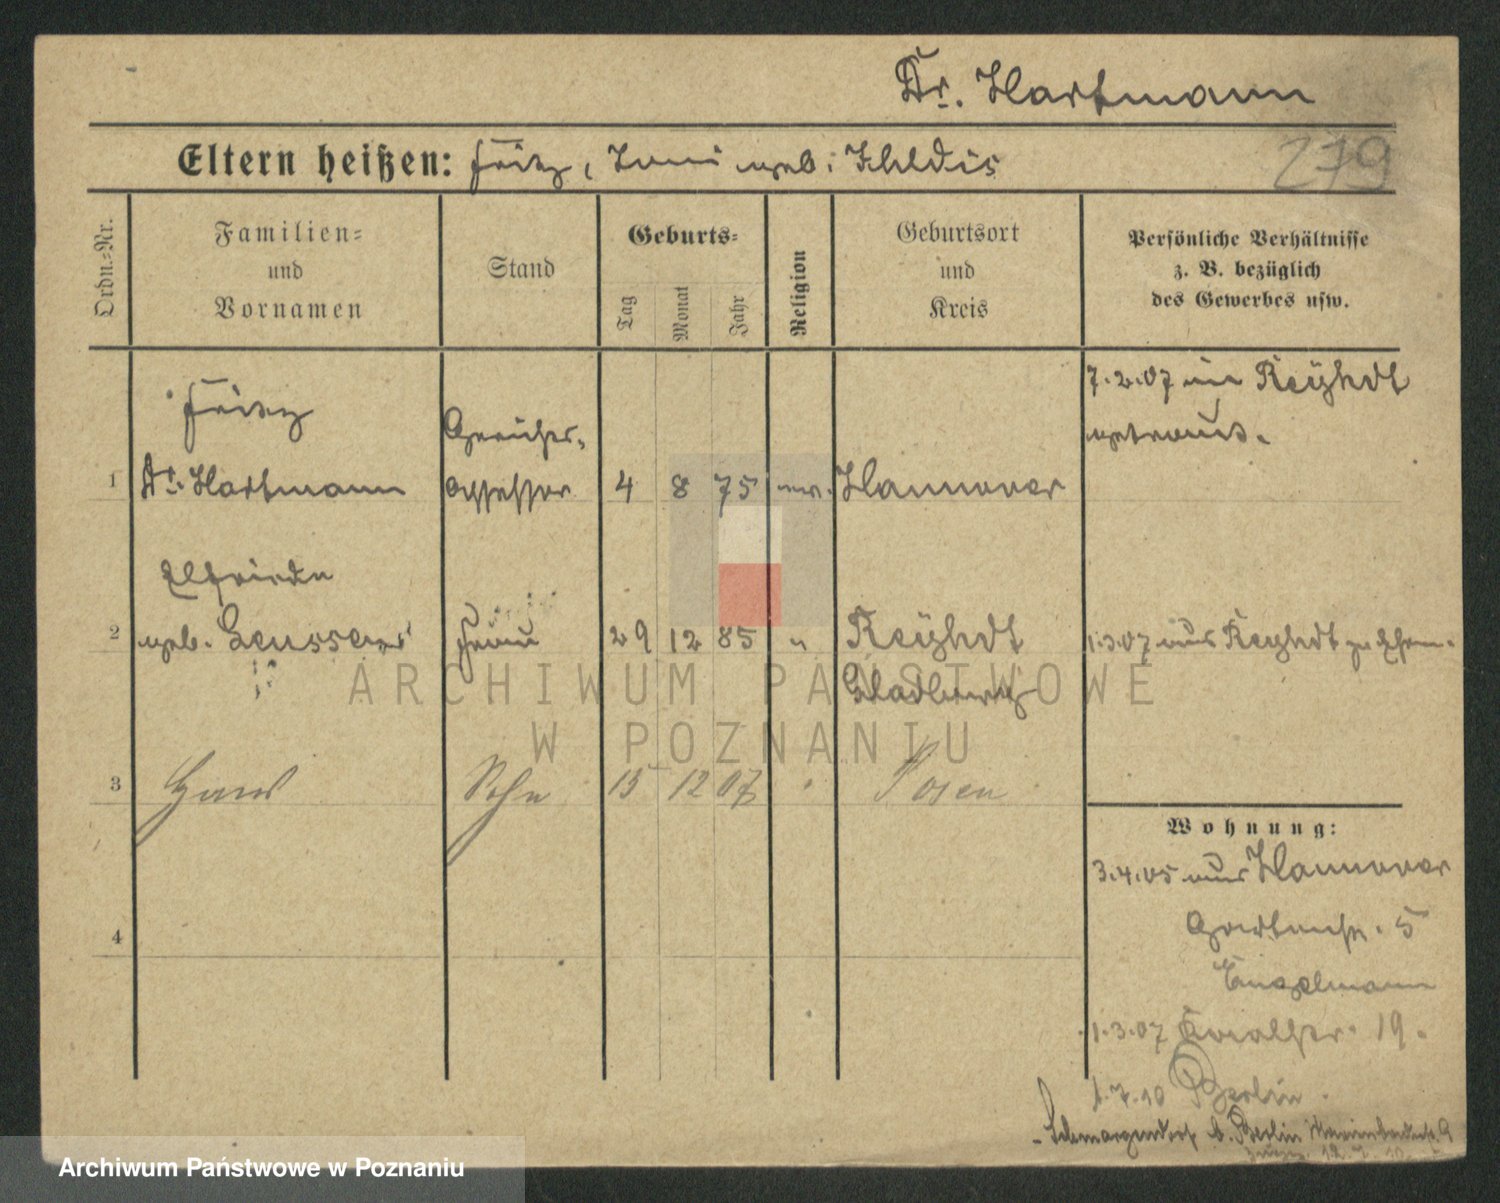 Dr. Hartmann
279
Eltern heißen: Fritz, Toni geb:
Ordn.-Nr.
Familien-
und
Vornamen
Stand
Geburts-
Tag
Monat
Jahr
Religion
Geburtsort
und
Kreis
Persönliche Verhältnisse
z. B. bezüglich
des Gewerbes usw.
7.2.07 in Reyhdt
getraut.
Fritz
Gerichts-
1 Dr. Hartmann assessor 4 8 75 ev. Hannover
Elfriede
2 geb. Frau 29 12 85 " Reyhdt 1.3.07 aus Reyhdt zu Ehem.
Gladbach
3 Hans Sohn 15 12 07 " Posen
4
Wohnung:
3.4.05 aus Hannover
5
1.3.07 19.
1.7.10 Berlin.
Schmargendorf b. Berlin 9
12.7.10.
ARCHIWUM PAŃSTWOWE
W POZNANIU
Archiwum Państwowe w Poznaniu